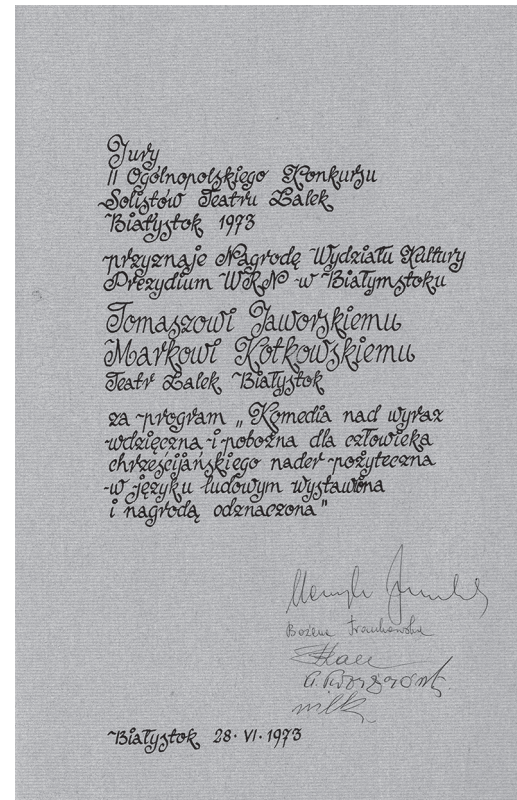 Jury
II Ogólnopolskiego Konkursu
Solistów Teatru Lalek
Białystok 1973
przyznaje Nagrodę Wydziału Kultury
Prezydium WRN w Białymstoku
Tomaszowi Jaworskiemu
Markowi Kotkowskiemu
Teatr Lalek Białystok
za program „Komedia nad wyraz
wdzięczna i pobożna dla człowieka
chrześcijańskiego nader pożyteczna
w języku ludowym wystawiona
i nagrodą odznaczona"
Henryk
Bożena Frankowska
Wilk
Białystok 28·VI·1973